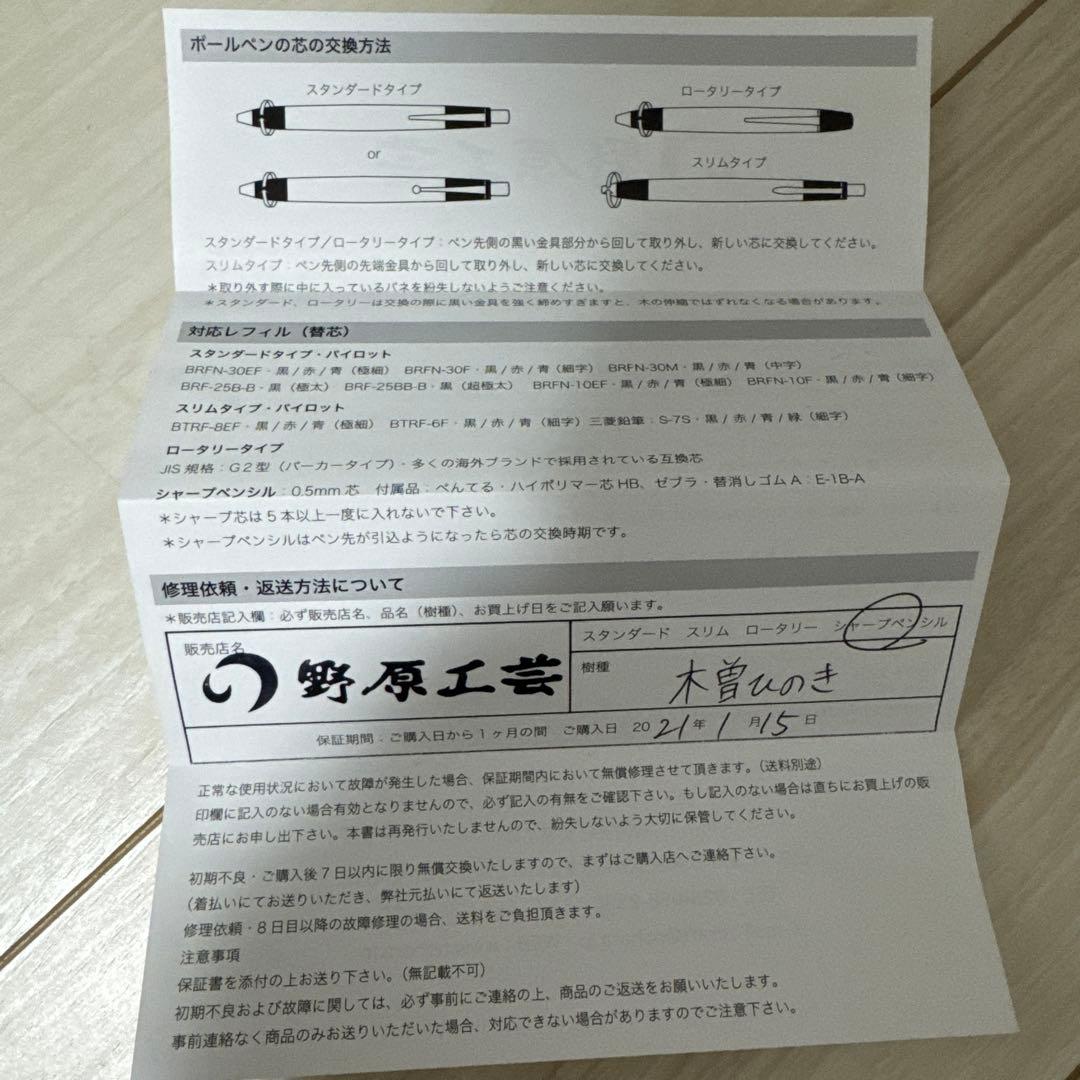 ボールペンの芯の交換方法
スタンダードタイプ
ロータリータイプ
or
スリムタイプ
スタンダードタイプ／ロータリータイプ：ペン先側の黒い金具部分から回して取り外し、新しい芯に交換してください。
スリムタイプ：ペン先側の先端金具から回して取り外し、新しい芯に交換してください。
＊取り外す際に中に入っているバネを紛失しないようご注意ください。
＊スタンダード、ロータリーは交換の際に黒い金具を強く締めすぎますと、木の伸縮ではずれなくなる場合があります。
対応レフィル（替芯）
スタンダードタイプ・パイロット
BRFN-30EF・黒/赤/青（極細） BRFN-30F・黒/赤/青（細字） BRFN-30M・黒/赤/青（中字）
BRF-25B-B・黒（極太） BRF-25BB-B・黒（超極太） BRFN-10EF・黒/赤/青（極細） BRFN-10F・黒/赤/青（細字）
スリムタイプ・パイロット
BTRF-8EF・黒/赤/青（極細） BTRF-6F・黒/赤/青（細字）三菱鉛筆：S-7S・黒/赤/青/緑（細字）
ロータリータイプ
JIS規格：G2型（パーカータイプ）・多くの海外ブランドで採用されている互換芯
シャープペンシル：0.5mm芯 付属品：ぺんてる・ハイポリマー芯HB、ゼブラ・替消しゴムA：E-1B-A
＊シャープ芯は5本以上一度に入れないで下さい。
＊シャープペンシルはペン先が引込ようになったら芯の交換時期です。
修理依頼・返送方法について
＊販売店記入欄：必ず販売店名、品名（樹種）、お買上げ日をご記入願います。
販売店名
野原工芸
スタンダード スリム ロータリー シャープペンシル
樹種
木曽ひのき
保証期間：ご購入日から1ヶ月の間 ご購入日 2021年1月15日
正常な使用状況において故障が発生した場合、保証期間内において無償修理させて頂きます。（送料別途）
印欄に記入のない場合有効となりませんので、必ず記入の有無をご確認下さい。もし記入のない場合は直ちにお買上げの販
売店にお申し出下さい。本書は再発行いたしませんので、紛失しないよう大切に保管してください。
初期不良・ご購入後7日以内に限り無償交換いたしますので、まずはご購入店へご連絡下さい。
（着払いにてお送りいただき、弊社元払いにて返送いたします）
修理依頼・8日目以降の故障修理の場合、送料をご負担頂きます。
注意事項
保証書を添付の上お送り下さい。（無記載不可）
初期不良および故障に関しては、必ず事前にご連絡の上、商品のご返送をお願いいたします。
事前連絡なく商品のみお送りいただいた場合、対応できない場合がありますのでご注意下さい。